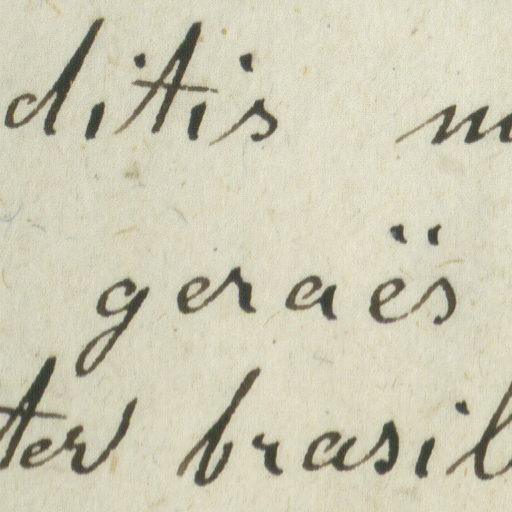 ditis m
geraës
ter brasil